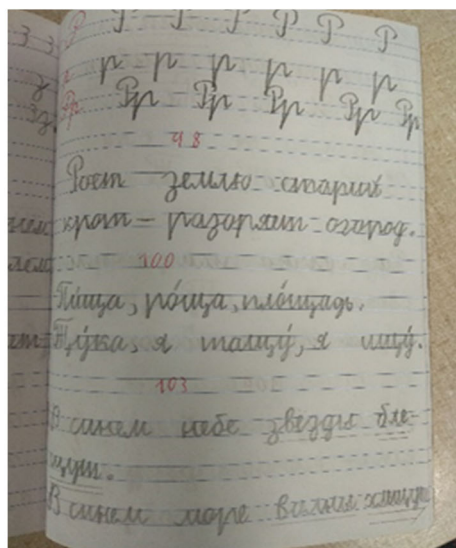 Р Р Р Р Р Р Р
р р р р р р
Рр Рр Рр Рр Рр Рр
98
Роет землю старый
крот – разоряет огород.
100
Пи́ща, ро́ща, пло́щадь.
Щу́ка, я тащу́, я ищу́.
103
В синем небе звезды бле-
щут.
В синем море волны хлещут